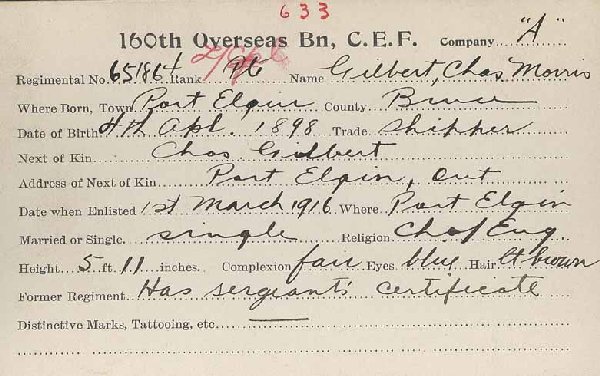 633
160th Overseas Bn, C.E.F. Company "A"
Regimental No. 651864 Rank Pte Name Gilbert, Chas Morris
Where Born, Town Port Elgin County Bruce
Date of Birth 4th Apl. 1898 Trade Shipper
Next of Kin Chas Gilbert
Address of Next of Kin Port Elgin, Ont
Date when Enlisted 1st March 1916 Where Port Elgin
Married or Single single Religion Ch of Eng
Height 5 ft. 11 inches. Complexion fair Eyes blue Hair lt brown
Former Regiment Has sergeant's certificate
Distinctive Marks, Tattooing, etc.